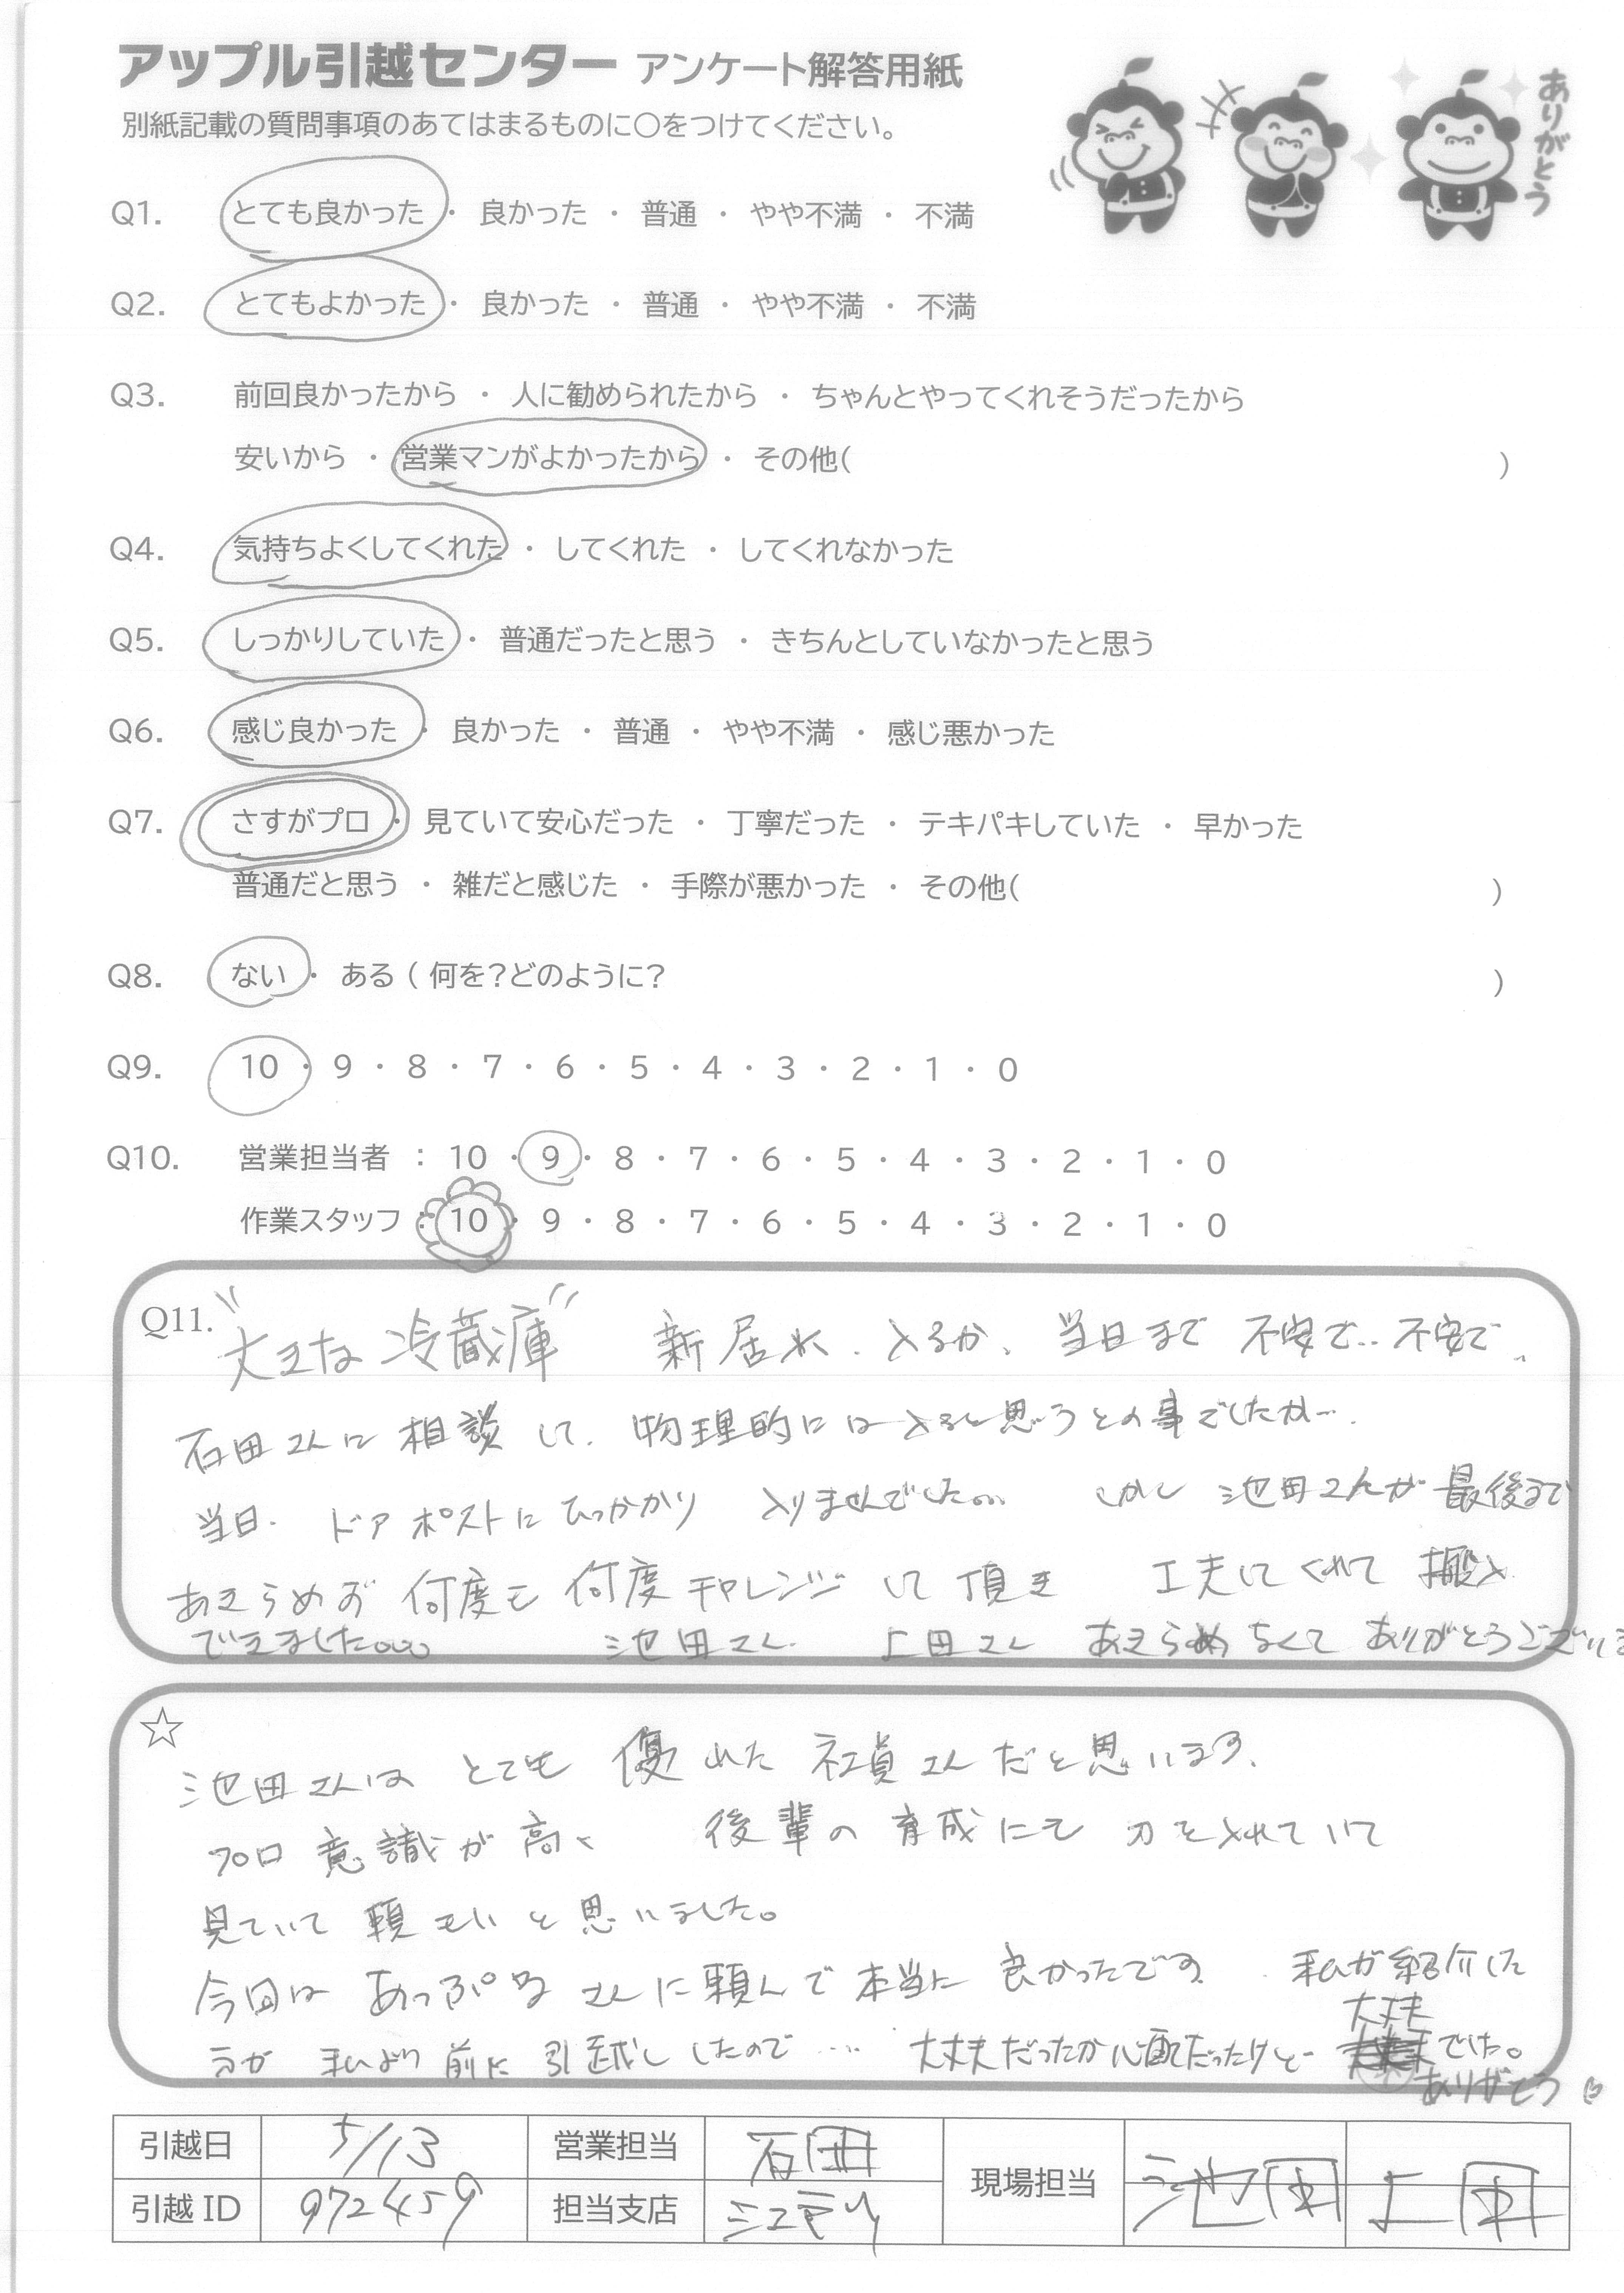 アップル引越センター アンケート解答用紙
別紙記載の質問事項のあてはまるものに〇をつけてください。
ありがとう
Q1. とても良かった ・ 良かった ・ 普通 ・ やや不満 ・ 不満
Q2. とてもよかった ・ 良かった ・ 普通 ・ やや不満 ・ 不満
Q3. 前回良かったから ・ 人に勧められたから ・ ちゃんとやってくれそうだったから
安いから ・ 営業マンがよかったから ・ その他( )
Q4. 気持ちよくしてくれた ・ してくれた ・ してくれなかった
Q5. しっかりしていた ・ 普通だったと思う ・ きちんとしていなかったと思う
Q6. 感じ良かった ・ 良かった ・ 普通 ・ やや不満 ・ 感じ悪かった
Q7. さすがプロ ・ 見ていて安心だった ・ 丁寧だった ・ テキパキしていた ・ 早かった
普通だと思う ・ 雑だと感じた ・ 手際が悪かった ・ その他( )
Q8. ない ・ ある ( 何を?どのように? )
Q9. 10 ・ 9 ・ 8 ・ 7 ・ 6 ・ 5 ・ 4 ・ 3 ・ 2 ・ 1 ・ 0
Q10. 営業担当者 : 10 ・ 9 ・ 8 ・ 7 ・ 6 ・ 5 ・ 4 ・ 3 ・ 2 ・ 1 ・ 0
作業スタッフ : 10 ・ 9 ・ 8 ・ 7 ・ 6 ・ 5 ・ 4 ・ 3 ・ 2 ・ 1 ・ 0
Q11. "大きな冷蔵庫" 新居に、入るか、当日まで 不安で… 不安で、
石田さんに 相談して、物理的には入ると思うとの事でしたが….
当日. ドアポストにひっかかり 入りませんでした… しかし 池田さんが 最後まで
あきらめず 何度も 何度チャレンジ して頂き 工夫してくれて 搬入
できました。。。 池田さん. 上田さん あきらめなくて ありがとうございま
☆
池田さんは とても 優れた 社員さんだと思います.
プロ意識が高く 後輩の育成にも 力を入れていて
見ていて 頼もしいと思いました。
今回は あっぷるさんに頼んで本当に良かったです. 私が紹介した
方が 私より前に引越ししたので … 大丈夫だったか心配だったけど 大丈夫でした。
ありがとう
引越日 5/13 営業担当 石田 現場担当 池田 上田
引越ID 972459 担当支店